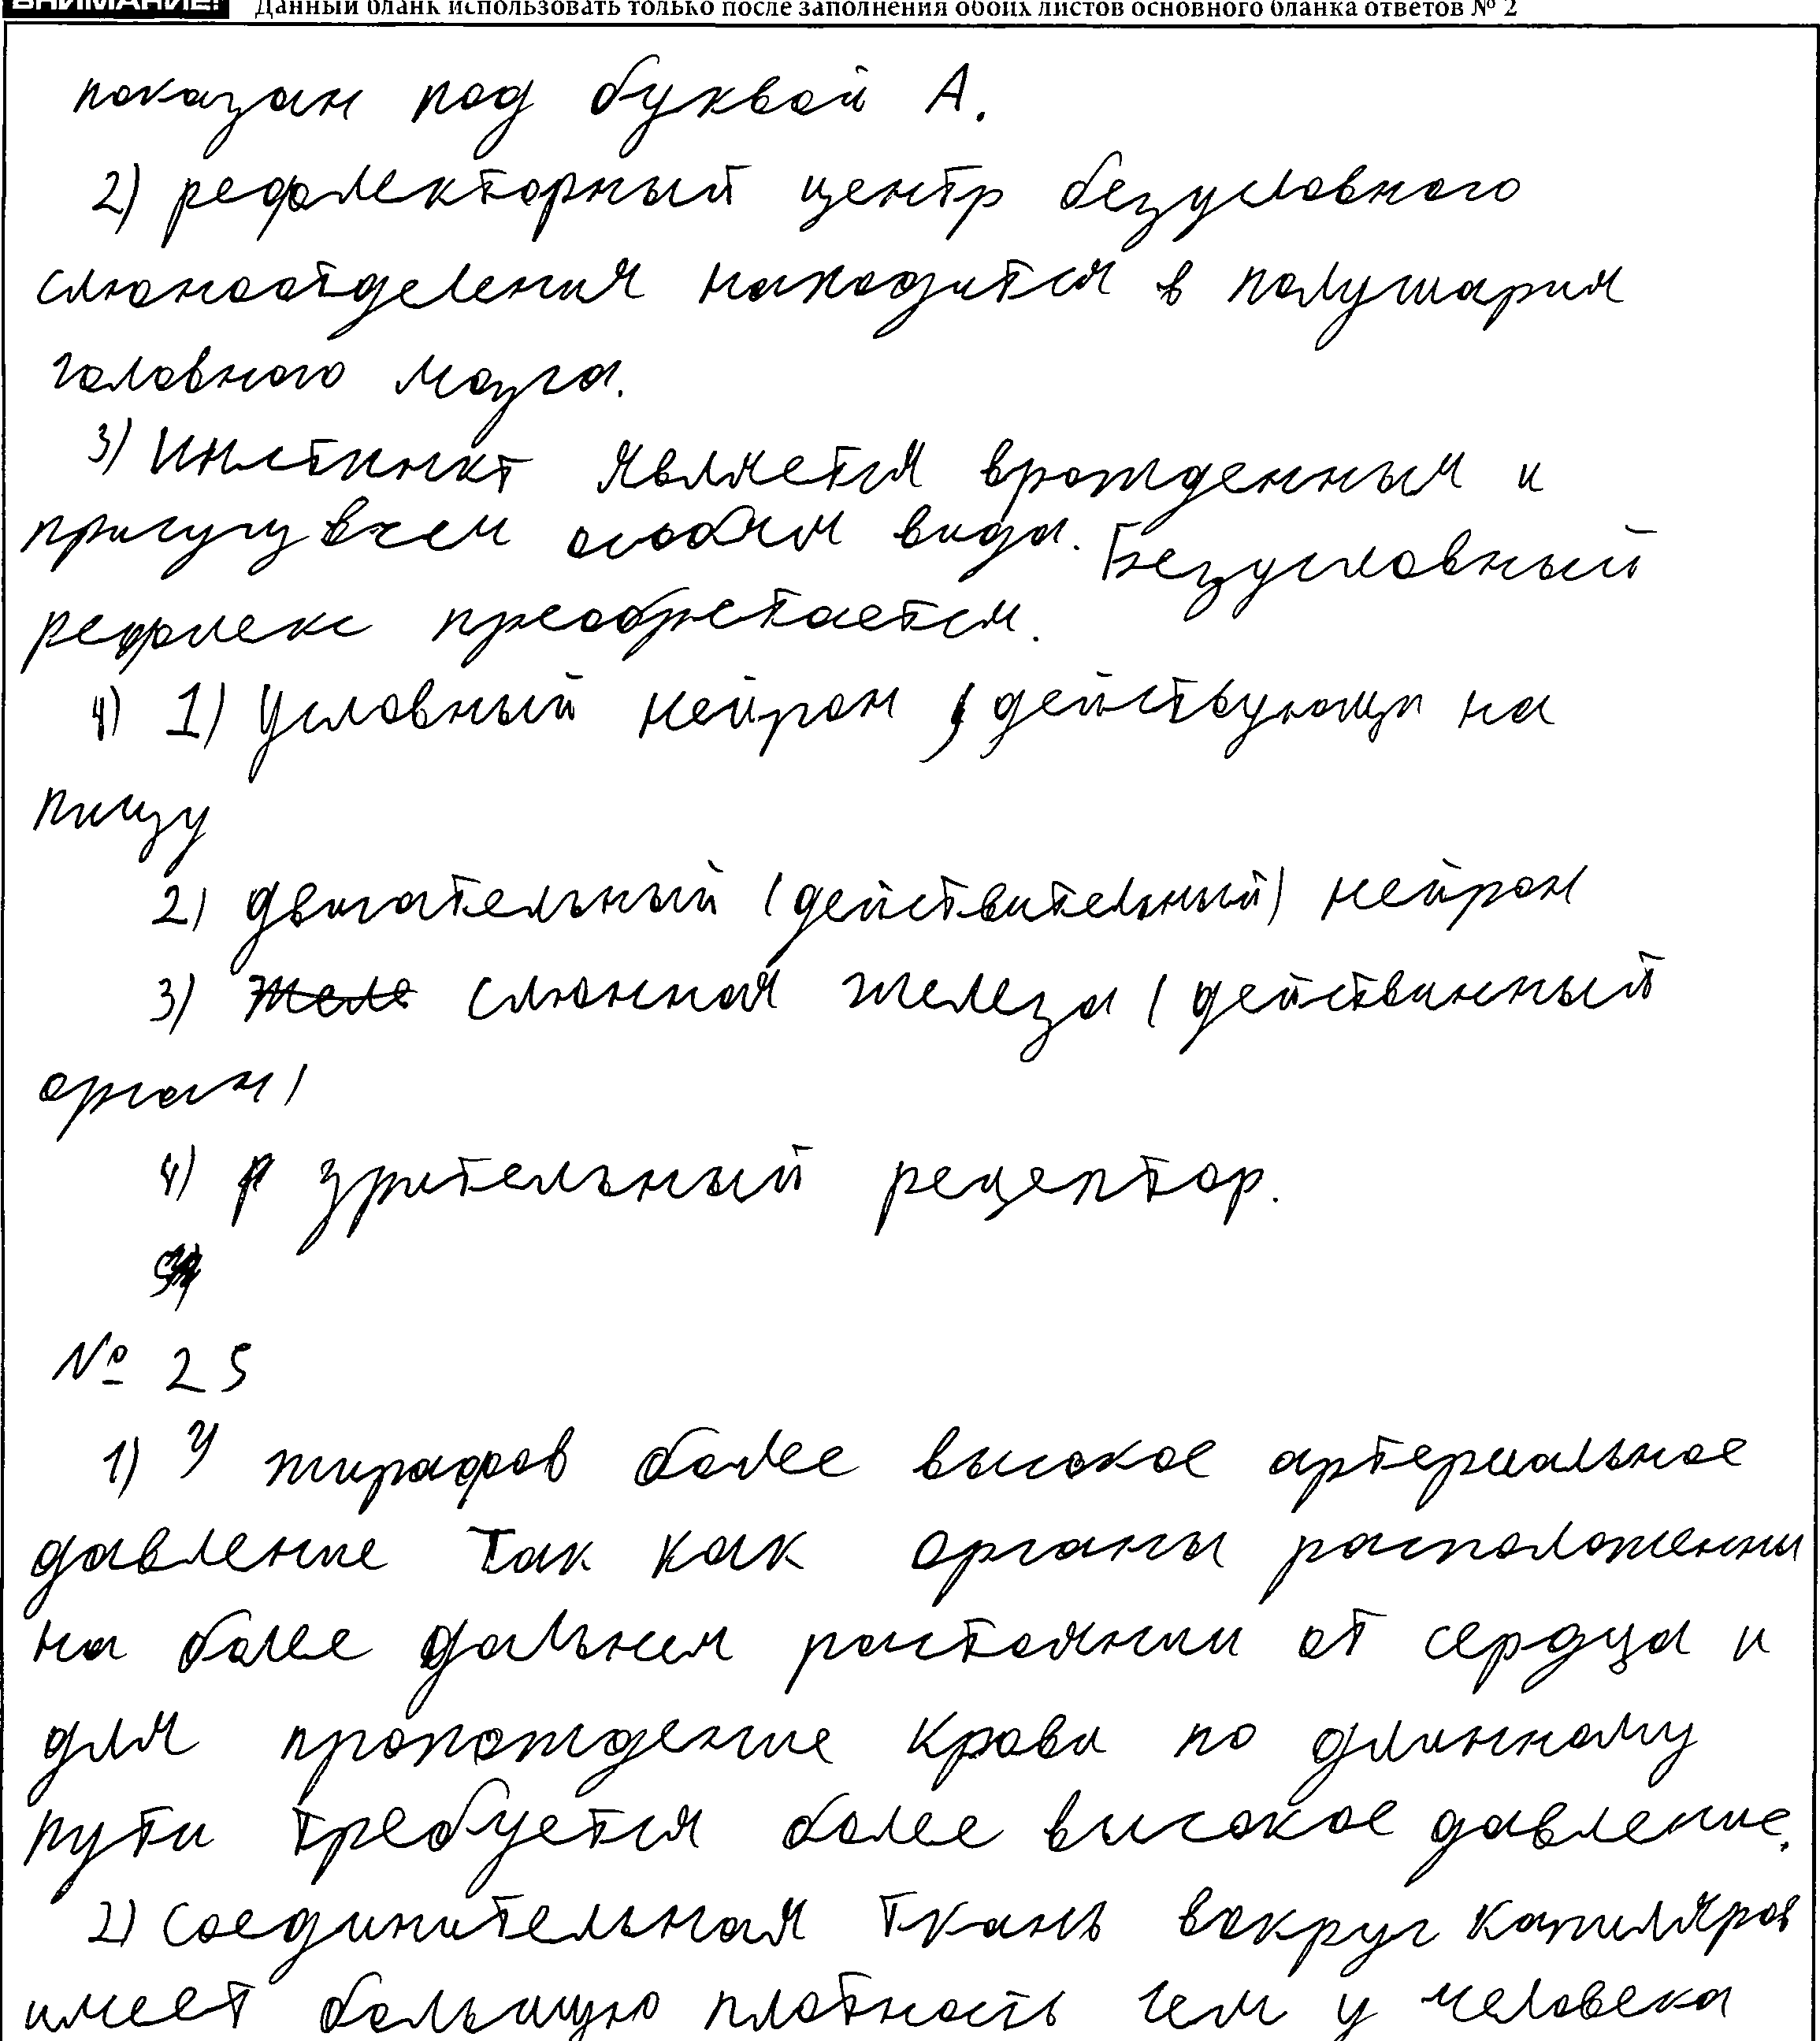 ВНИМАНИЕ! Данный бланк использовать только после заполнения обоих листов основного бланка ответов № 2
показан под буквой А.
2) рефлекторный центр безусловного
слюноотделения находится в полушария
головного мозга.
3) Инстинкт является врожденным и
присущ всем особям вида. Безусловный
рефлекс преобретается.
4) 1) Условный нейрон, действующи на
пищу
2) двигательный (действительный) нейрон
3) Желе слюнная железа (действинный
орган)
4) р зрительный рецептор.
№ 25
1) У жирафов более высокое артериальное
давление так как органы расположенны
на более дальнем растоянии от сердца и
для прохождение крови по длинному
пути требуется более высокое давление.
2) Соединительная ткань вокруг капиляров
имеет большую плотность чем у человека